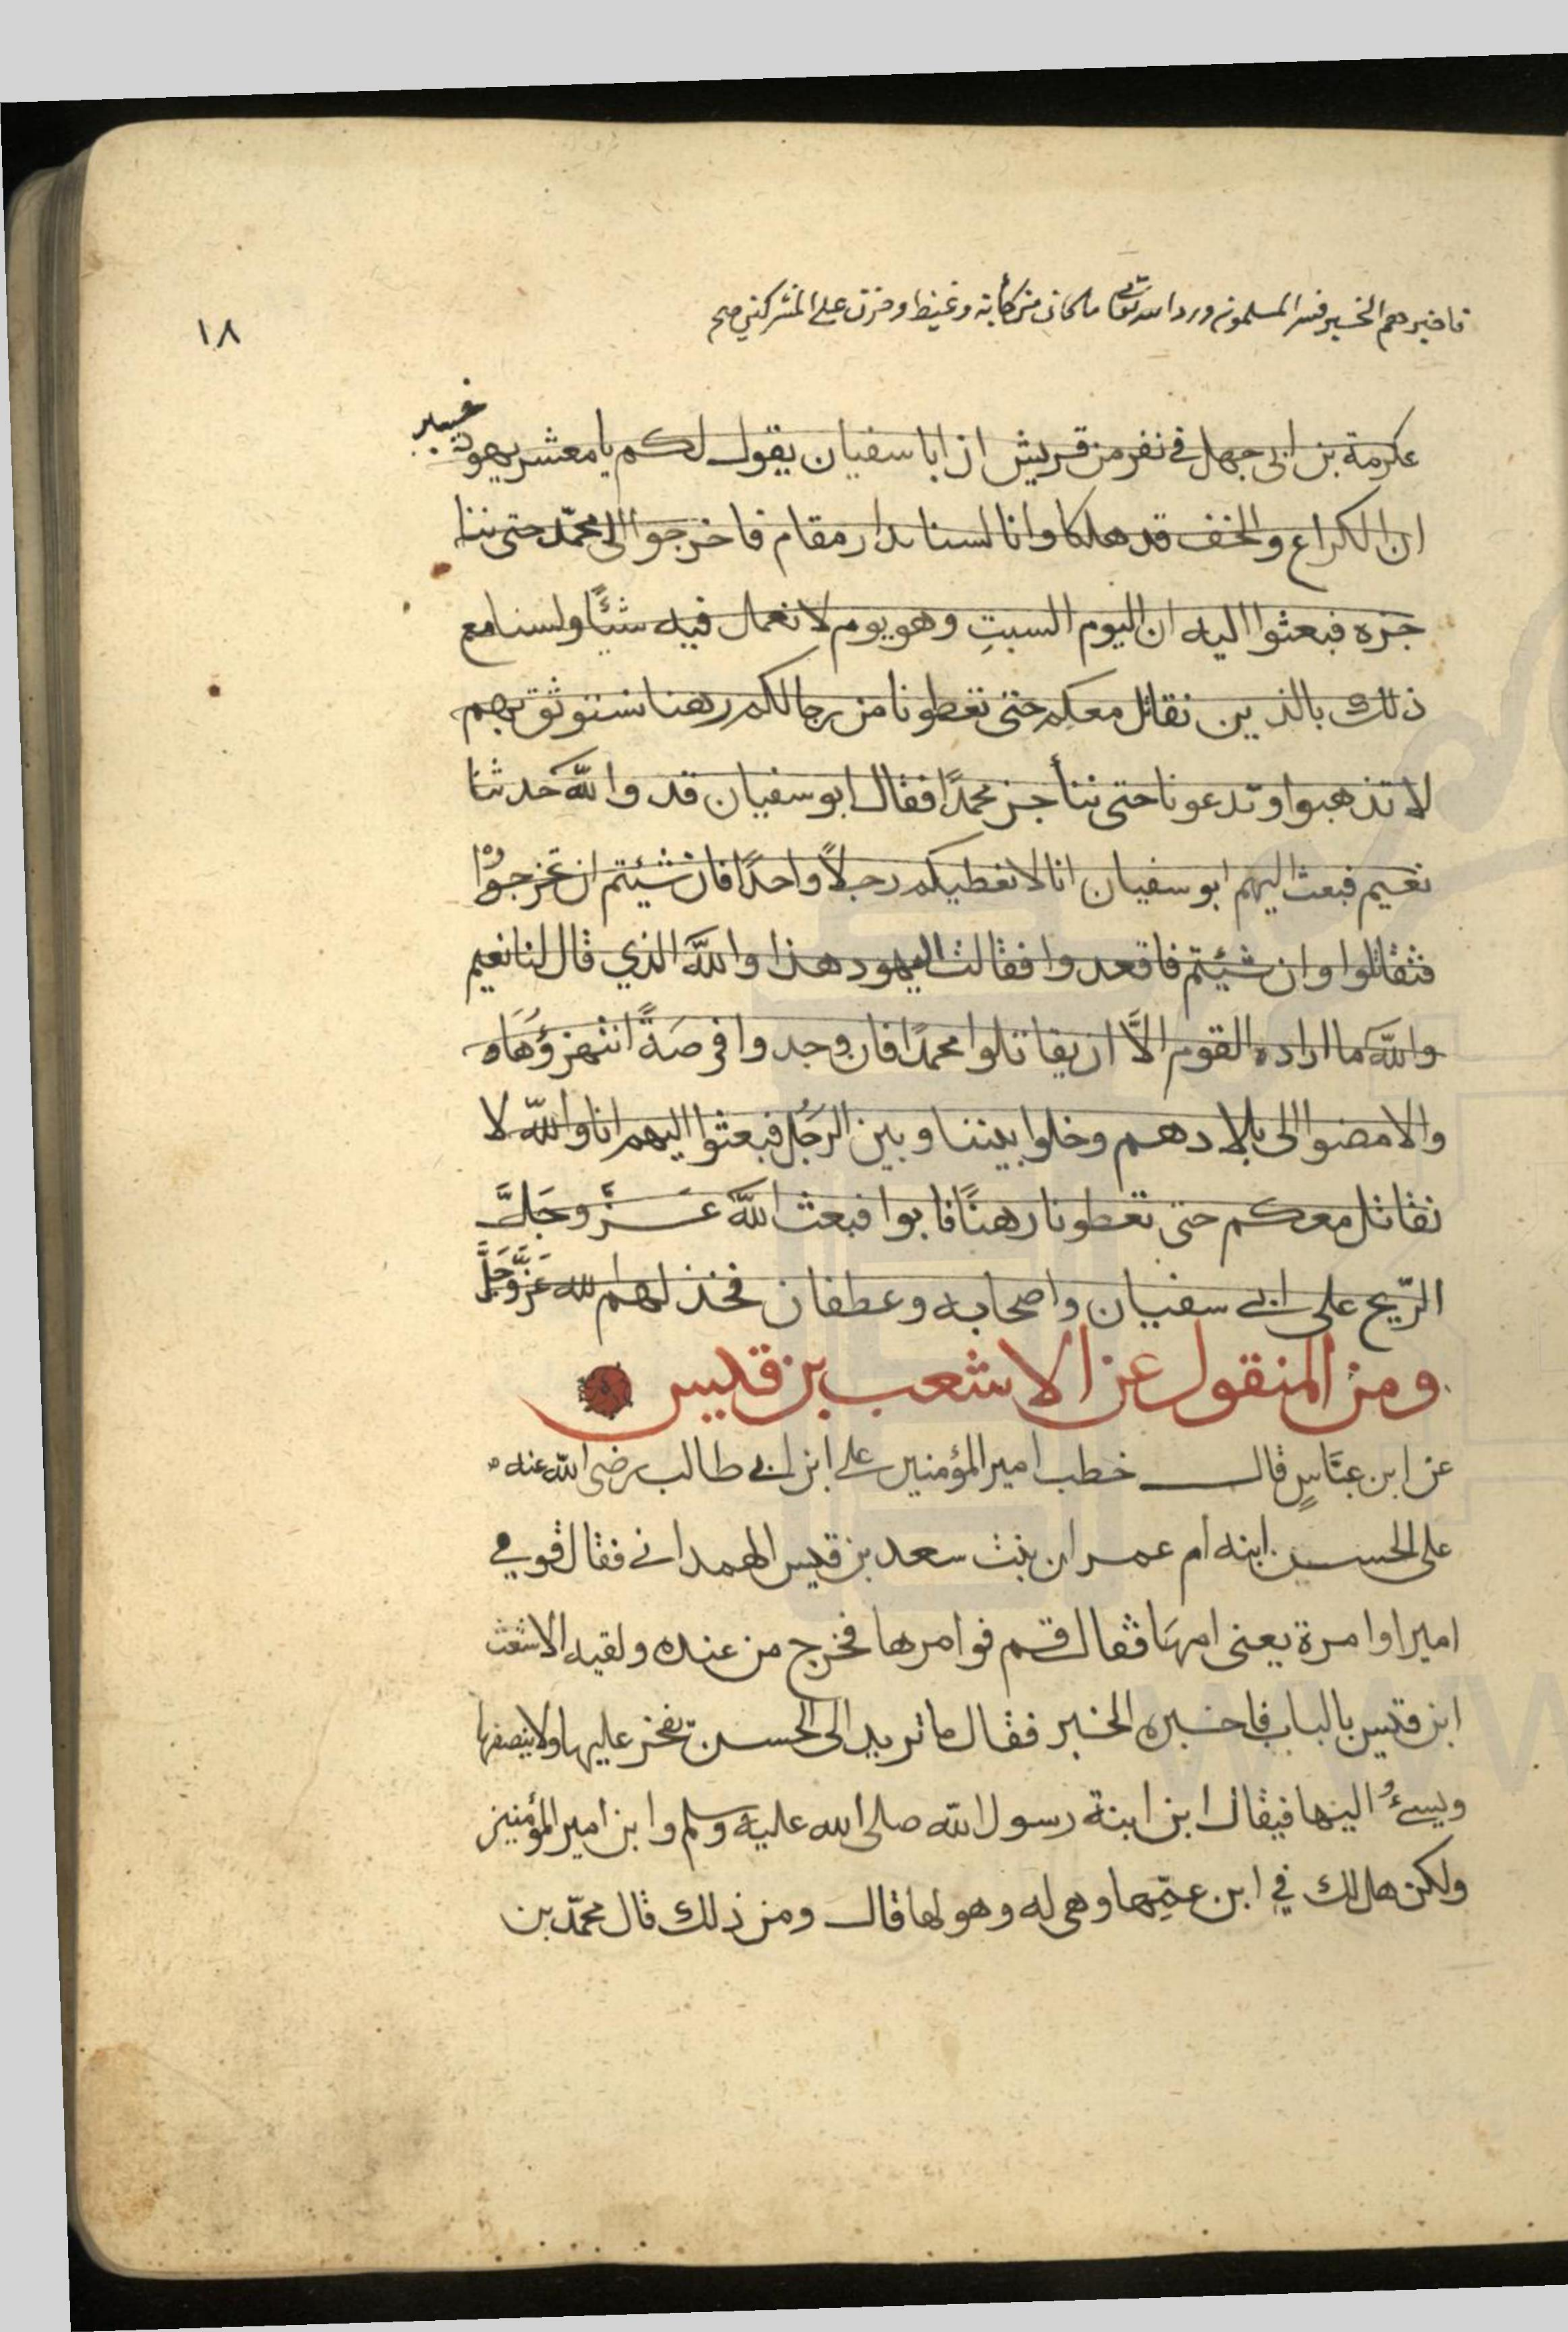 فاخبرهم الخبر فسر المسلمون ورد الله تعالى ما كان من كأبة وغيظ وحزن على المشركين صح
١٨
عكرمة بن ابى جهل فى نفر من قريش ان ابا سفيان يقول لكم يا معشر يهود
خيبر
ان الكراع والخف قد هلكا وانا لسنا بدار مقام فاخرجوا الى محمّد حتى ننا
جزه فبعثوا اليه ان اليوم السبتِ وهو يوم لا نعمل فيه شئًا ولسنا مع
ذلك بالذين نقاتل معكم حتى تعطونا من رجالكم رهنا نستوثق بهم
لا تذهبوا وتدعونا حتى نناجز محمدًا فقال ابو سفيان قد والله حدثنا
نعيم فبعث اليهم ابو سفيان انا لا نعطيكم رجلاً واحدًا فان شيئتم ان تخرجوْا
فتقاتلوا وان شيئتم فاقعدوا فقالت اليهود هذا والله الذي قال لنا نعيم
والله ما اراده القوم الاَّ ان يقاتلوا محمدًا فان وجدوا فرصَةً انتهزوُهَا
والا مضوا الى بلادهم وخلوا بيننا وبين الرَجُل فبعثوا اليهم انا والله لا
نقاتل معكم حتى تعطونا رهنًا فابوا فبعث الله عَزَّ وَجَلَّ
الرّيح على ابى سفيان واصحابه وعطفان فخذلهم الله عَزَّ وَجَلَّ
ومن المنقول عن الاشعب بن قيس
عن ابن عبَّاسٍ قال خطب امير المؤمنين على ابن ابى طالب رضى الله عنه
على الحسين ابنه ام عمران بنت سعد بن قيس الهمدانى فقال فوقي
اميرا وامرة يعنى امهَا فقال قم فوامرها فخرج من عنده ولقيه الاشعث
ابن قيس بالباب فاخبره الخبر فقال ما تريد الى الحسين يفخر عليها ولا ينصفها
ويسيءُ اليها فيقال ابن ابنة رسول الله صلى الله عليه وسلم وابن امير المؤمنين
ولكن هل لك في ابن عمِّها وهى له وهو لها قال ومن ذلك قال محمّد بن